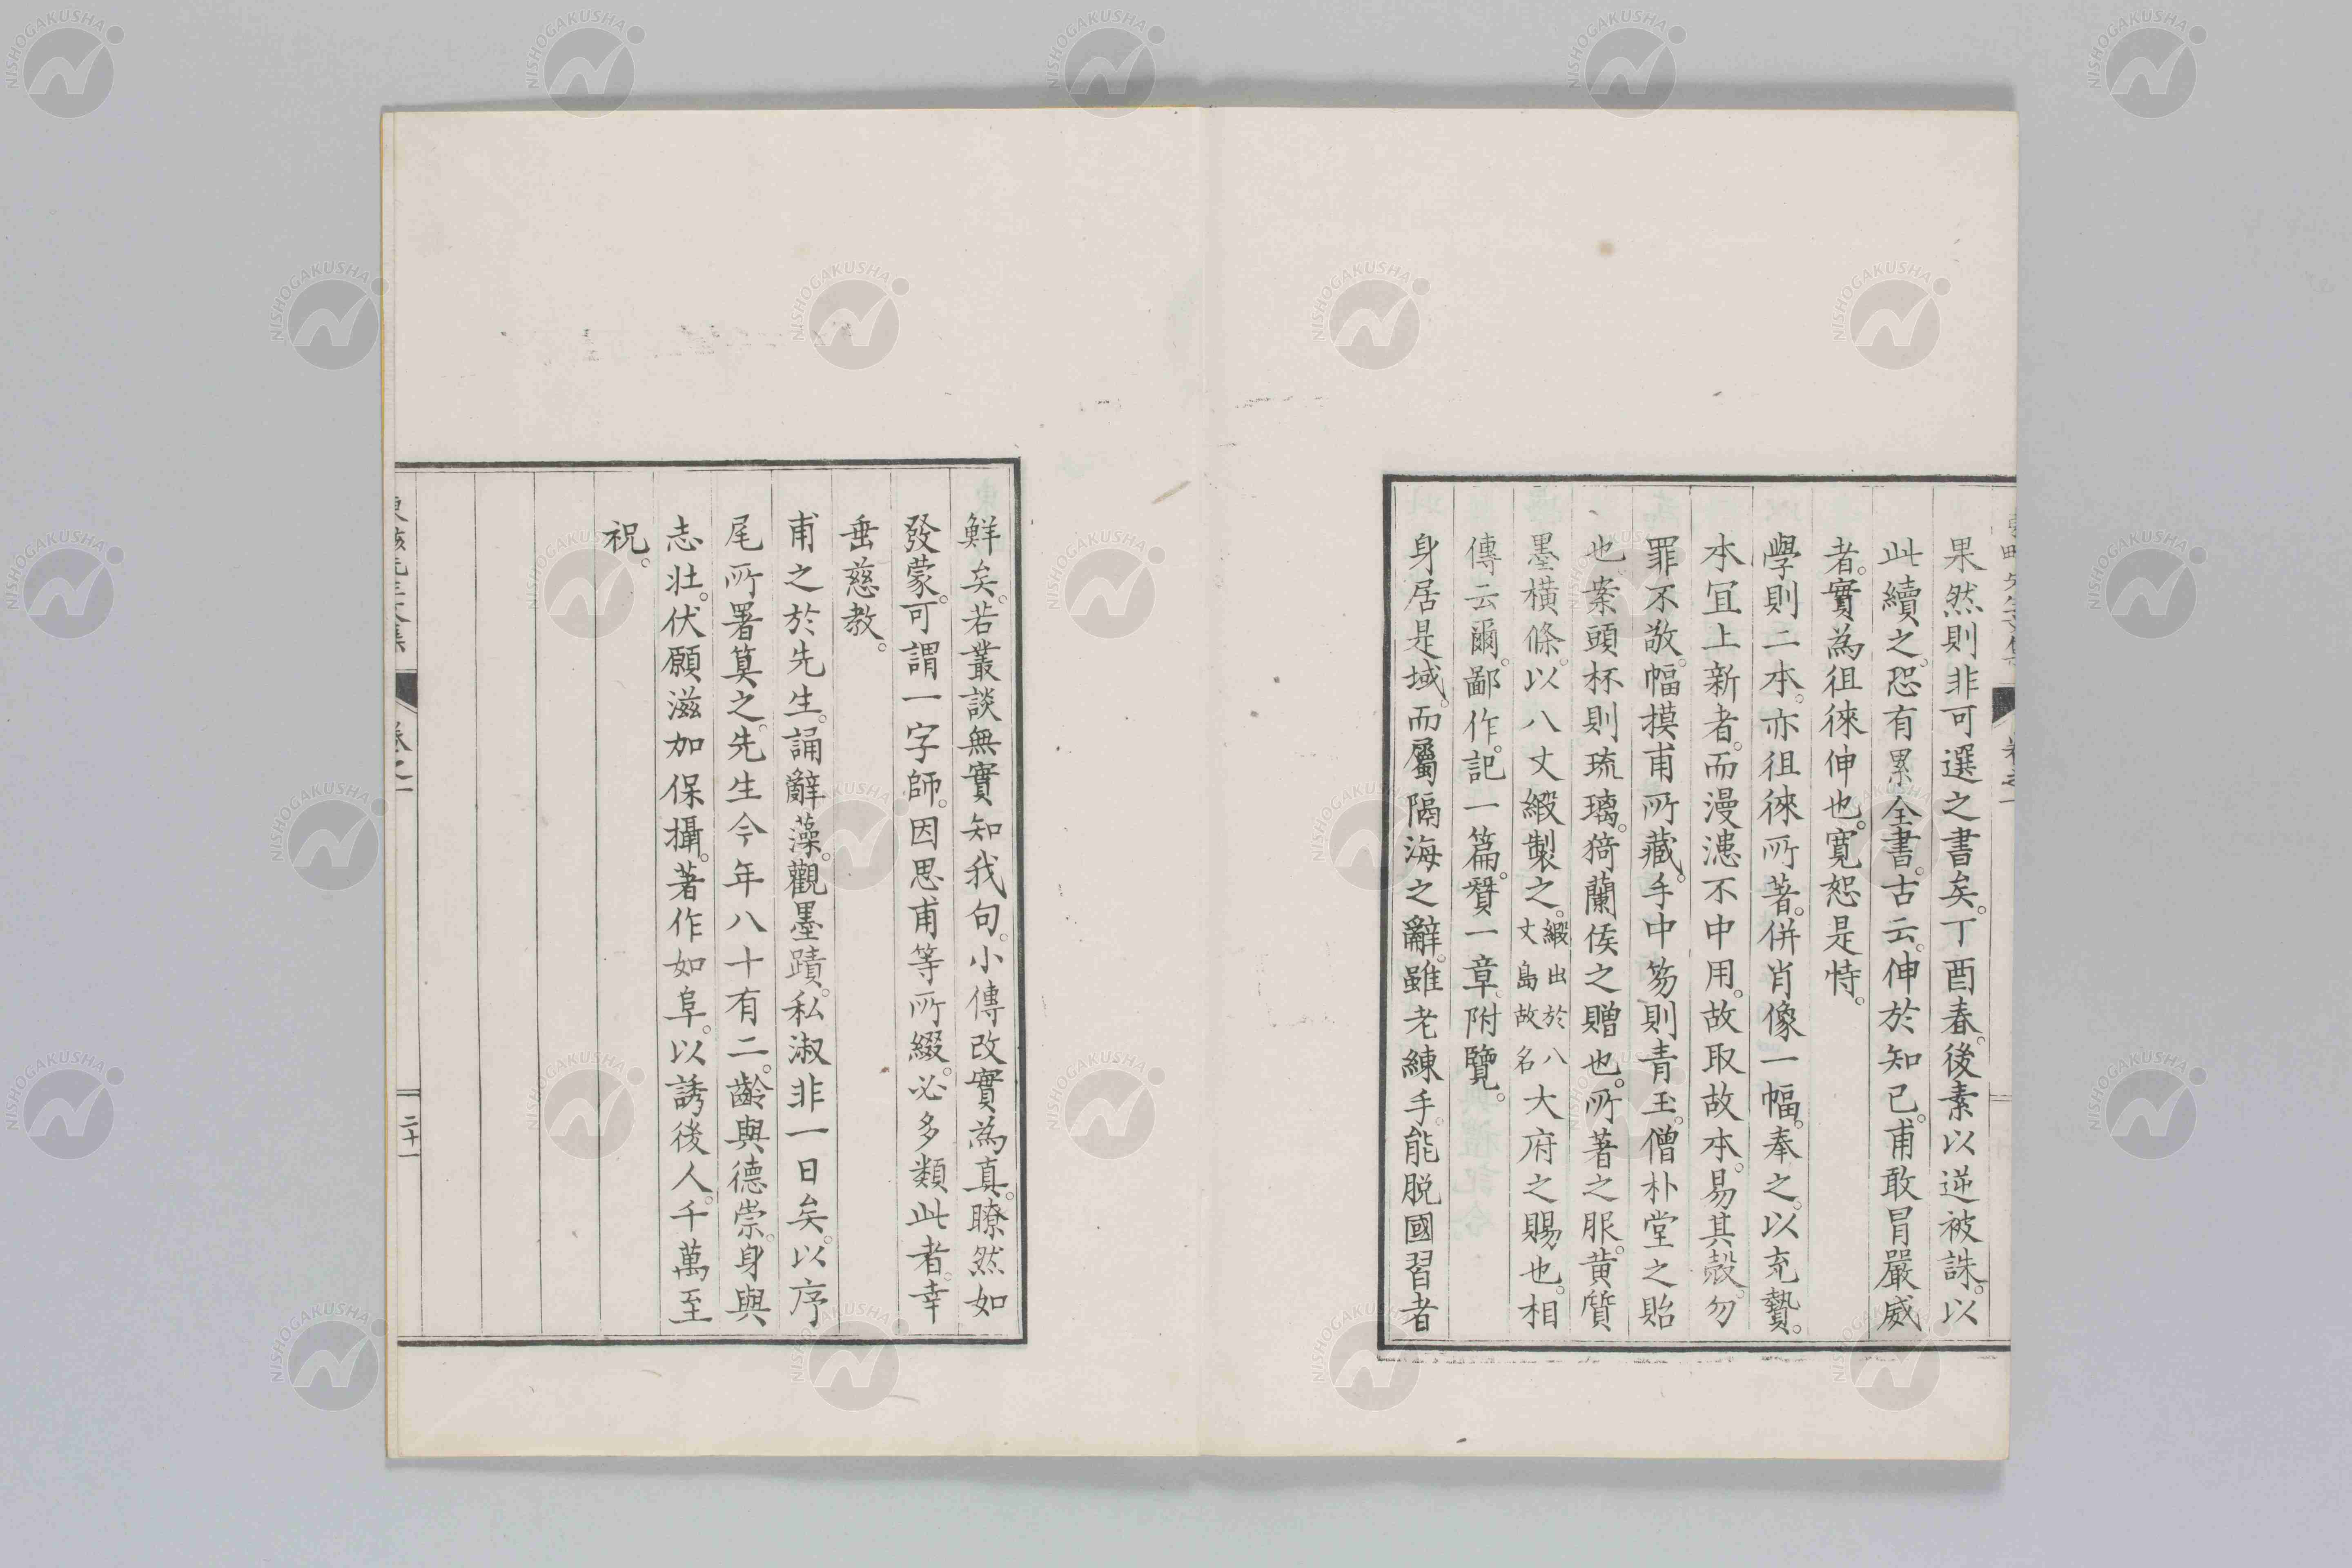 果然則非可選之書矣。丁酉春。後素以逆被誅。以
此續之。恐有累全書。古云。伸於知己。甫敢冒嚴威
者。實為徂徠伸也。寬恕是恃。
學則二本。亦徂徠所著。併肖像一幅。奉之。以充贄。
本宜上新者。而漫漶不中用。故取故本。易其殼。勿
罪不敬。幅摸甫所藏。手中笏則青玉。僧朴堂之貽
也。案頭杯則琉璃。猗蘭侯之贈也。所著之服。黃質
墨橫條。以八丈緞製之。緞出於八丈島故名大府之賜也。相
傳云爾。鄙作。記一篇。贊一章。附覽。
身居是域。而屬隔海之辭。雖老練手。能脫國習者
鮮矣。若叢談無實知我句。小傳改實為真。瞭然如
發蒙。可謂一字師。因思甫等所綴。必多類此者。幸
垂慈教。
甫之於先生。誦辭藻。觀墨蹟。私淑非一日矣。以序
尾所署算之。先生今年八十有二。齡與德崇。身與
志壯。伏願滋加保攝。著作如阜。以誘後人。千萬至
祝。
卷之一
二十一
NISHOGAKUSHA